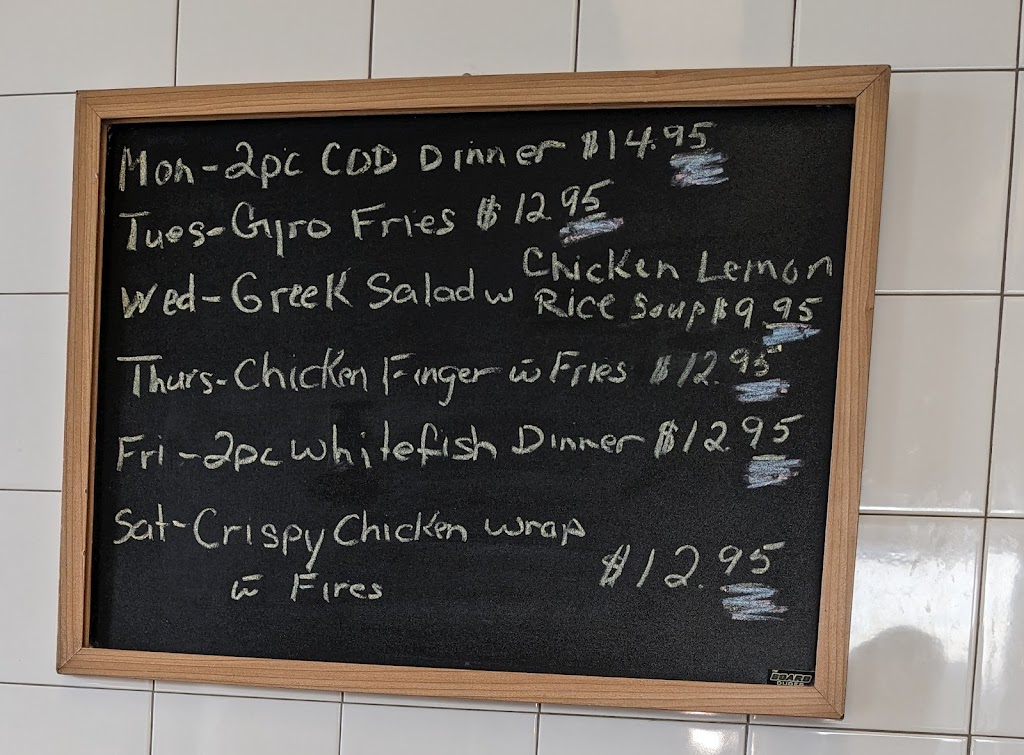 Mon-2pc COD Dinner $14.95
Tues-Gyro Fries $12.95
Wed-Greek Salad w Chicken Lemon
Rice Soup $9.95
Thurs-Chicken Finger w̄ Fries $12.95
Fri-2pc Whitefish Dinner $12.95
Sat-Crispy Chicken wrap
w̄ Fires $12.95
BOARD
DUDES